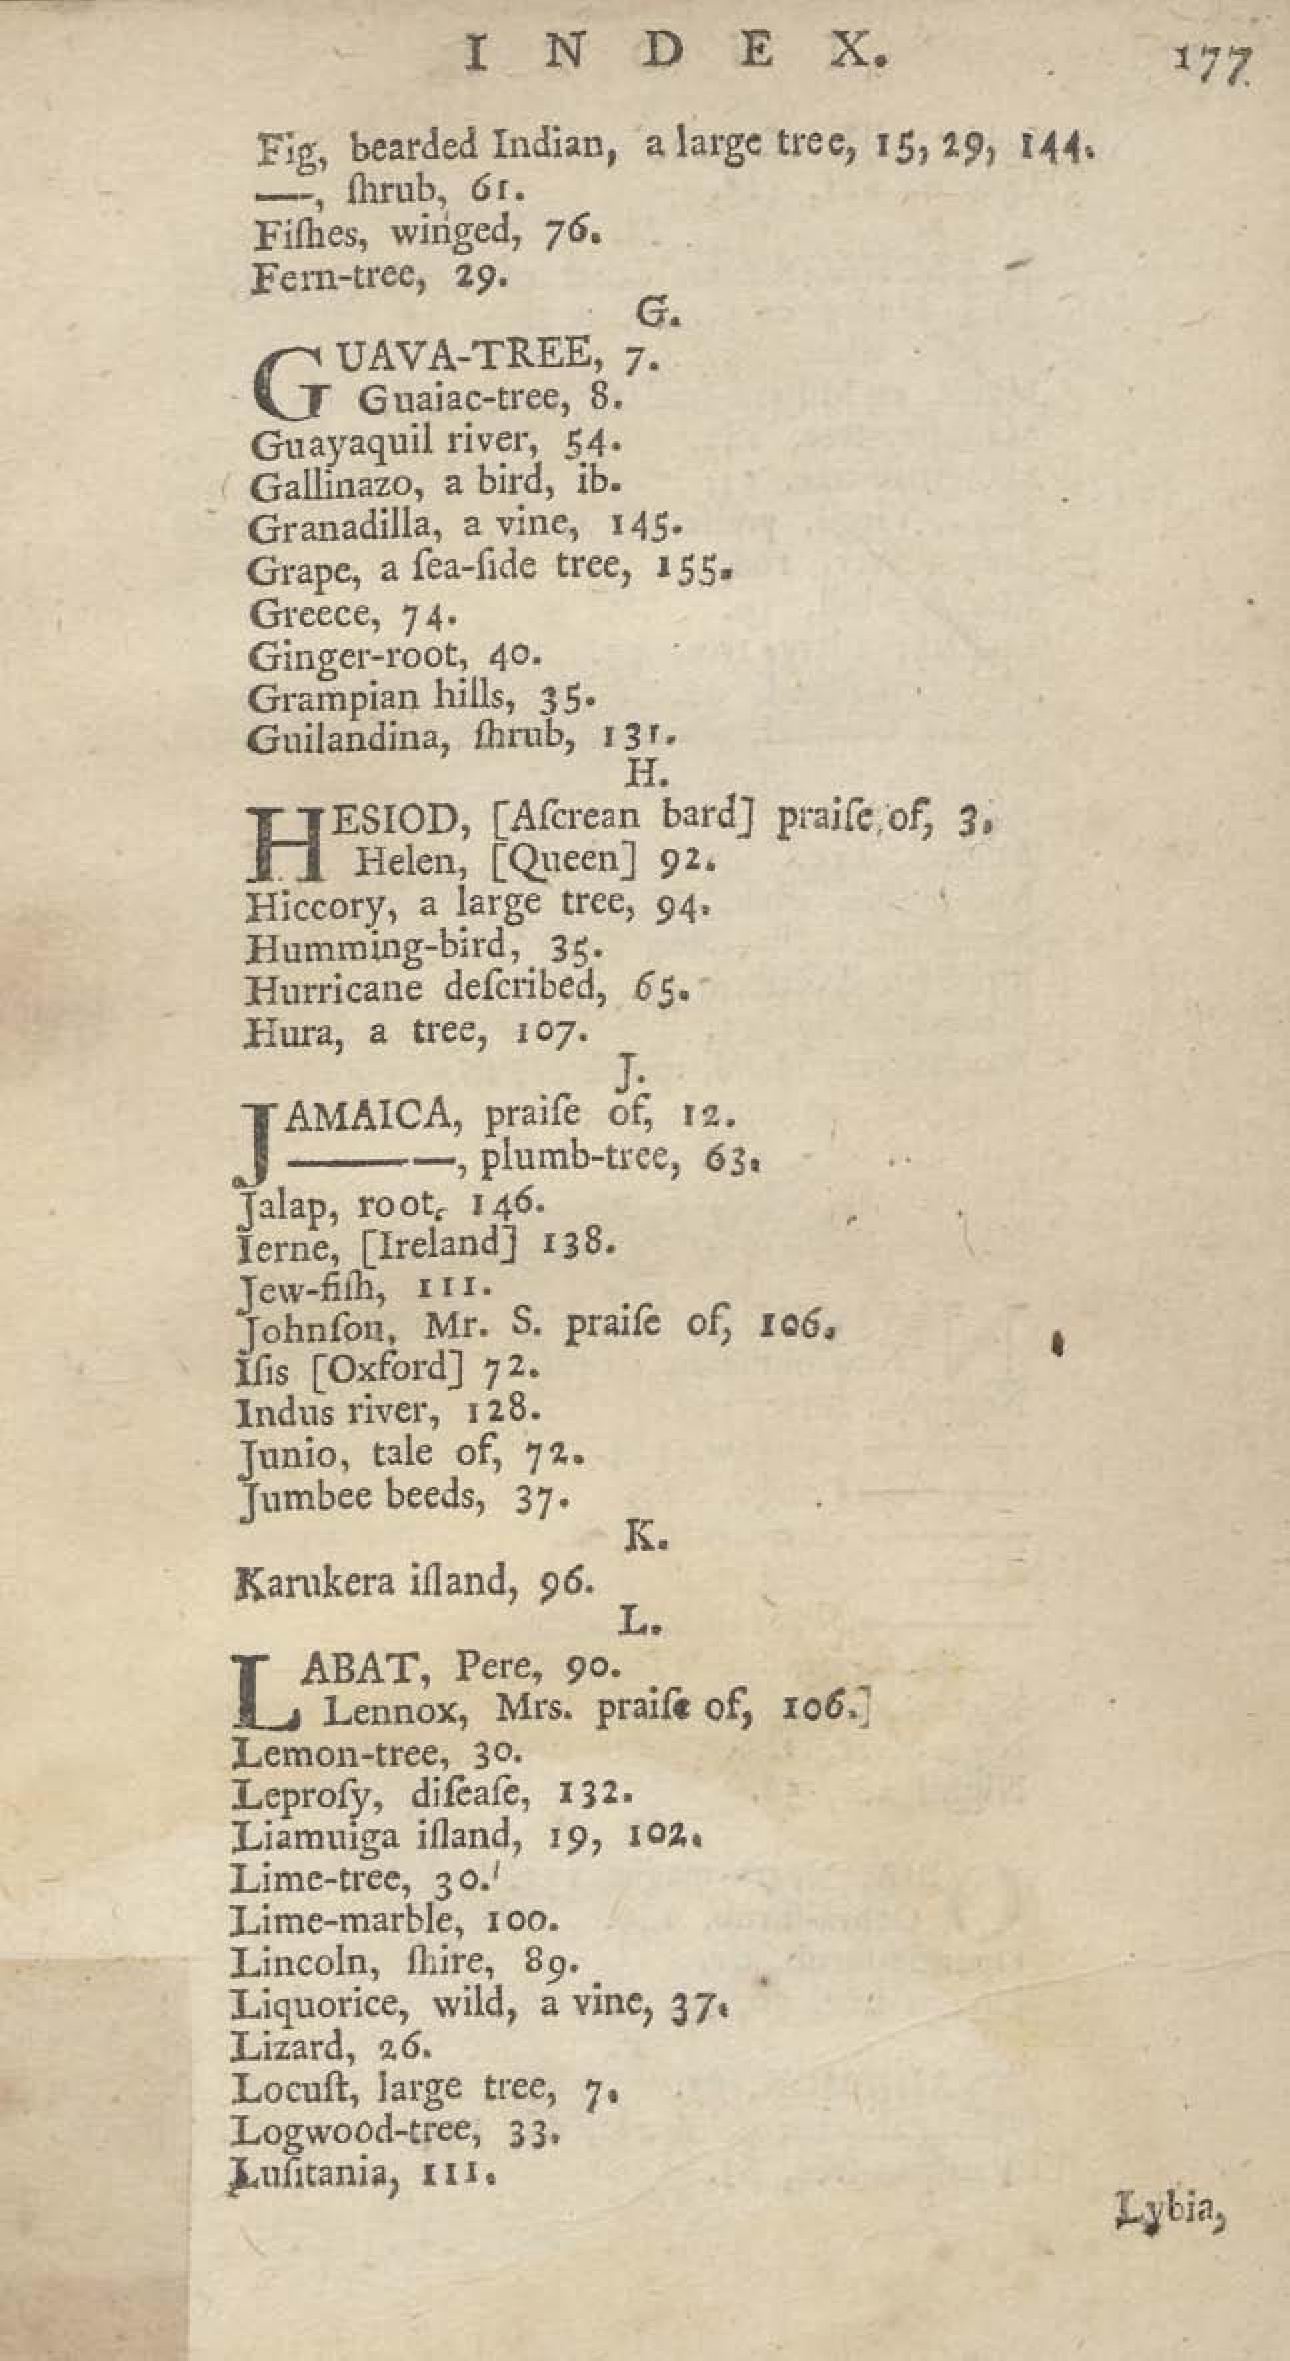 INDEX. 177
Fig, bearded Indian, a large tree, 15, 29, 144.
——, ſhrub, 61.
Fiſhes, winged, 76.
Fern-tree, 29.
G.
GUAVA-TREE, 7.
Guaiac-tree, 8.
Guayaquil river, 54.
Gallinazo, a bird, ib.
Granadilla, a vine, 145.
Grape, a ſea-ſide tree, 155.
Greece, 74.
Ginger-root, 40.
Grampian hills, 35.
Guilandina, ſhrub, 131.
H.
HESIOD, [Aſcrean bard] praiſe of, 3.
Helen, [Queen] 92.
Hiccory, a large tree, 94.
Humming-bird, 35.
Hurricane deſcribed, 65.
Hura, a tree, 107.
J.
JAMAICA, praiſe of, 12.
————, plumb-tree, 63.
Jalap, root, 146.
Ierne, [Ireland] 138.
Jew-fiſh, 111.
Johnſon, Mr. S. praiſe of, 106.
Iſis [Oxford] 72.
Indus river, 128.
Junio, tale of, 72.
Jumbee beeds, 37.
K.
Karukera iſland, 96.
L.
LABAT, Pere, 90.
Lennox, Mrs. praiſe of, 106.]
Lemon-tree, 30.
Leproſy, diſeaſe, 132.
Liamuiga iſland, 19, 102.
Lime-tree, 30.
Lime-marble, 100.
Lincoln, ſhire, 89.
Liquorice, wild, a vine, 37.
Lizard, 26.
Locuſt, large tree, 7.
Logwood-tree, 33.
Luſitania, 111.
Lybia,